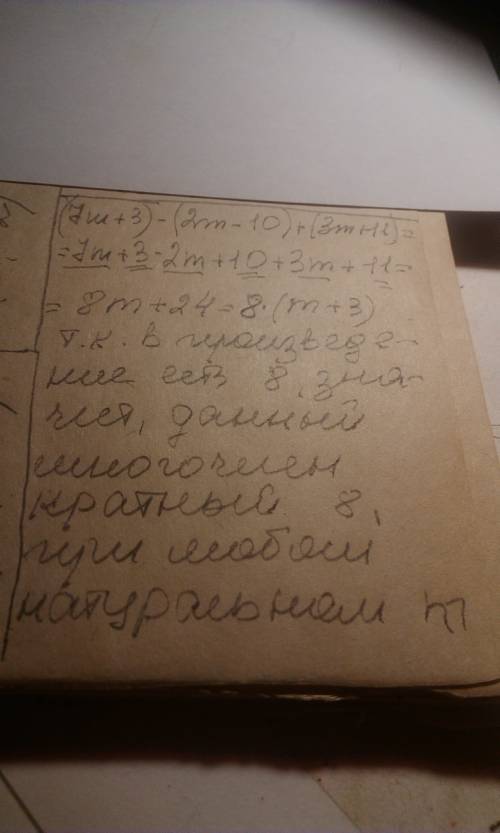 (7m+3)-(2m-10)+(3m+11)=
=7m+3-2m+10+3m+11=
=8m+24=8·(m+3)
т.к. в произведе-
ние есть 8, зна-
чит, данный
многочлен
кратный 8,
при любом
натуральном m